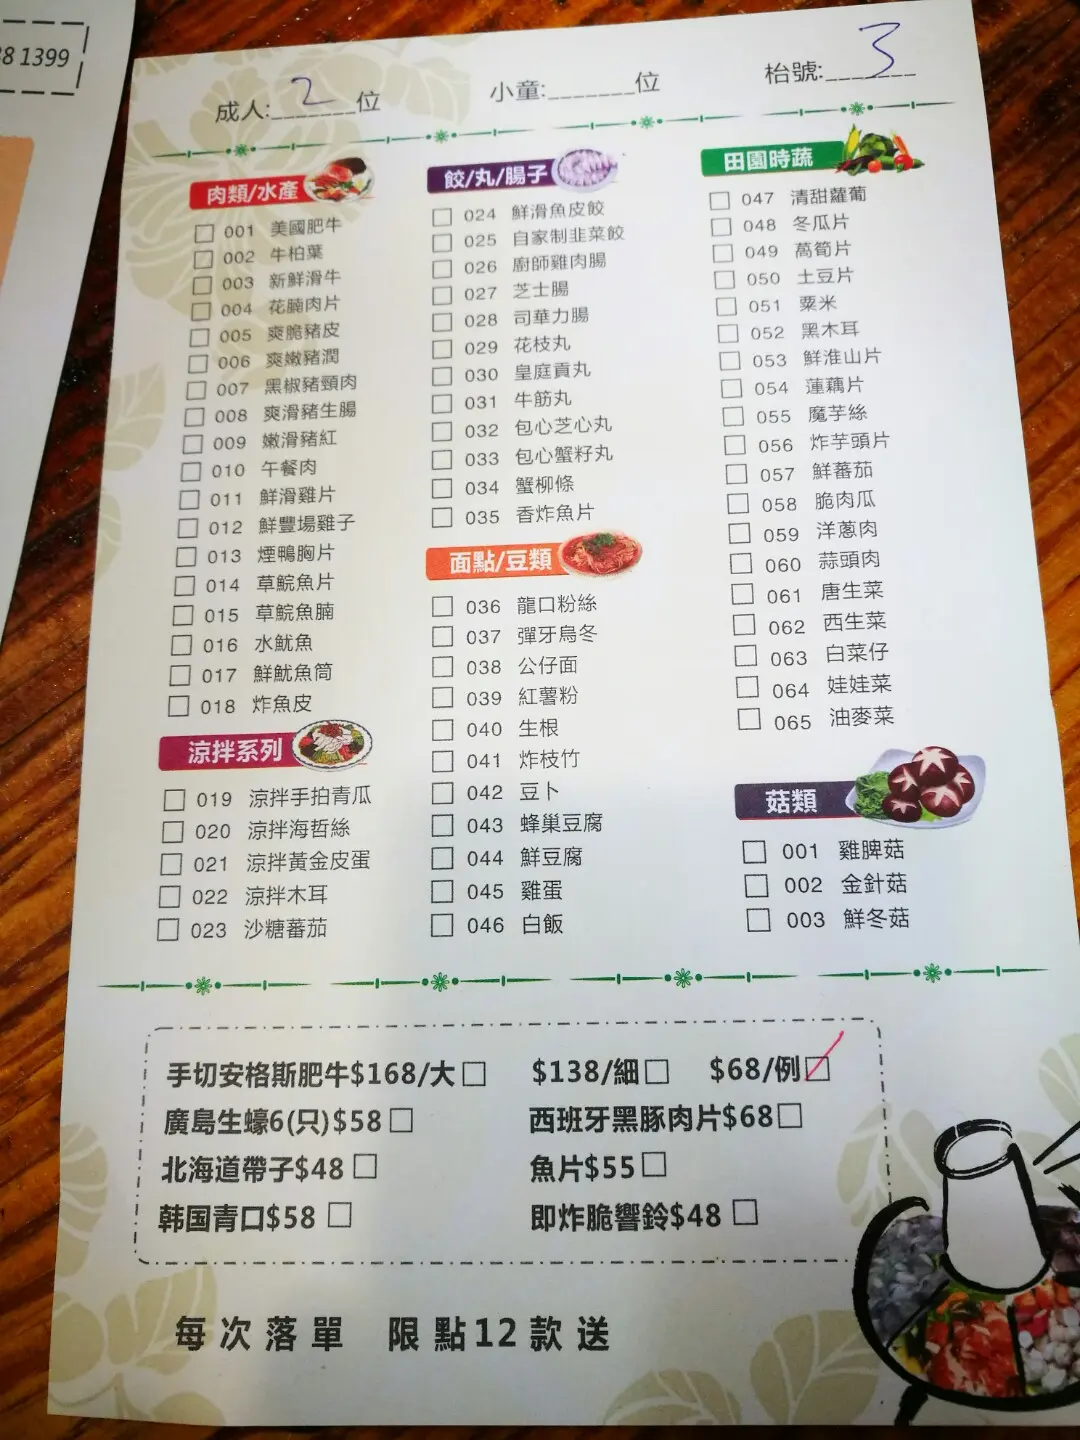 38 1399
成人:2位 小童:______位 枱號:3
肉類/水產
001 美國肥牛
002 牛柏葉
003 新鮮滑牛
004 花腩肉片
005 爽脆豬皮
006 爽嫩豬潤
007 黑椒豬頸肉
008 爽滑豬生腸
009 嫩滑豬紅
010 午餐肉
011 鮮滑雞片
012 鮮豐場雞子
013 煙鴨胸片
014 草鯇魚片
015 草鯇魚腩
016 水魷魚
017 鮮魷魚筒
018 炸魚皮
涼拌系列
019 涼拌手拍青瓜
020 涼拌海哲絲
021 涼拌黃金皮蛋
022 涼拌木耳
023 沙糖蕃茄
餃/丸/腸子
024 鮮滑魚皮餃
025 自家制韭菜餃
026 廚師雞肉腸
027 芝士腸
028 司華力腸
029 花枝丸
030 皇庭貢丸
031 牛筋丸
032 包心芝心丸
033 包心蟹籽丸
034 蟹柳條
035 香炸魚片
面點/豆類
036 龍口粉絲
037 彈牙烏冬
038 公仔面
039 紅薯粉
040 生根
041 炸枝竹
042 豆卜
043 蜂巢豆腐
044 鮮豆腐
045 雞蛋
046 白飯
田園時蔬
047 清甜蘿葡
048 冬瓜片
049 萵筍片
050 土豆片
051 粟米
052 黑木耳
053 鮮淮山片
054 蓮藕片
055 魔芋絲
056 炸芋頭片
057 鮮蕃茄
058 脆肉瓜
059 洋蔥肉
060 蒜頭肉
061 唐生菜
062 西生菜
063 白菜仔
064 娃娃菜
065 油麥菜
菇類
001 雞脾菇
002 金針菇
003 鮮冬菇
手切安格斯肥牛$168/大 $138/細 $68/例
廣島生蠔6(只)$58 西班牙黑豚肉片$68
北海道帶子$48 魚片$55
韩国青口$58 即炸脆響鈴$48
每次落單 限點12款送